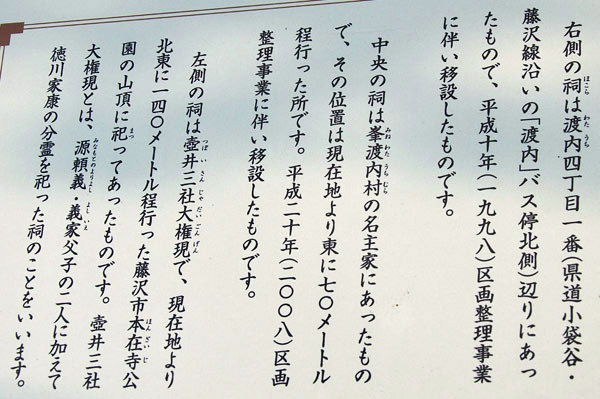 右側の祠は渡内四丁目一番(県道小袋谷・
藤沢線沿いの「渡内」バス停北側)辺りにあっ
たもので、平成十年(一九九八)区画整理事業
に伴い移設したものです。
中央の祠は峯渡内村の名主家にあったもの
で、その位置は現在地より東に七〇メートル
程行った所です。平成二十年(二〇〇八)区画
整理事業に伴い移設したものです。
左側の祠は壺井三社大権現で、現在地より
北東に一四〇メートル程行った藤沢市本在寺公
園の山頂に祀ってあったものです。壺井三社
大権現とは、源頼義・義家父子の二人に加えて
徳川家康の分霊を祀った祠のことをいいます。